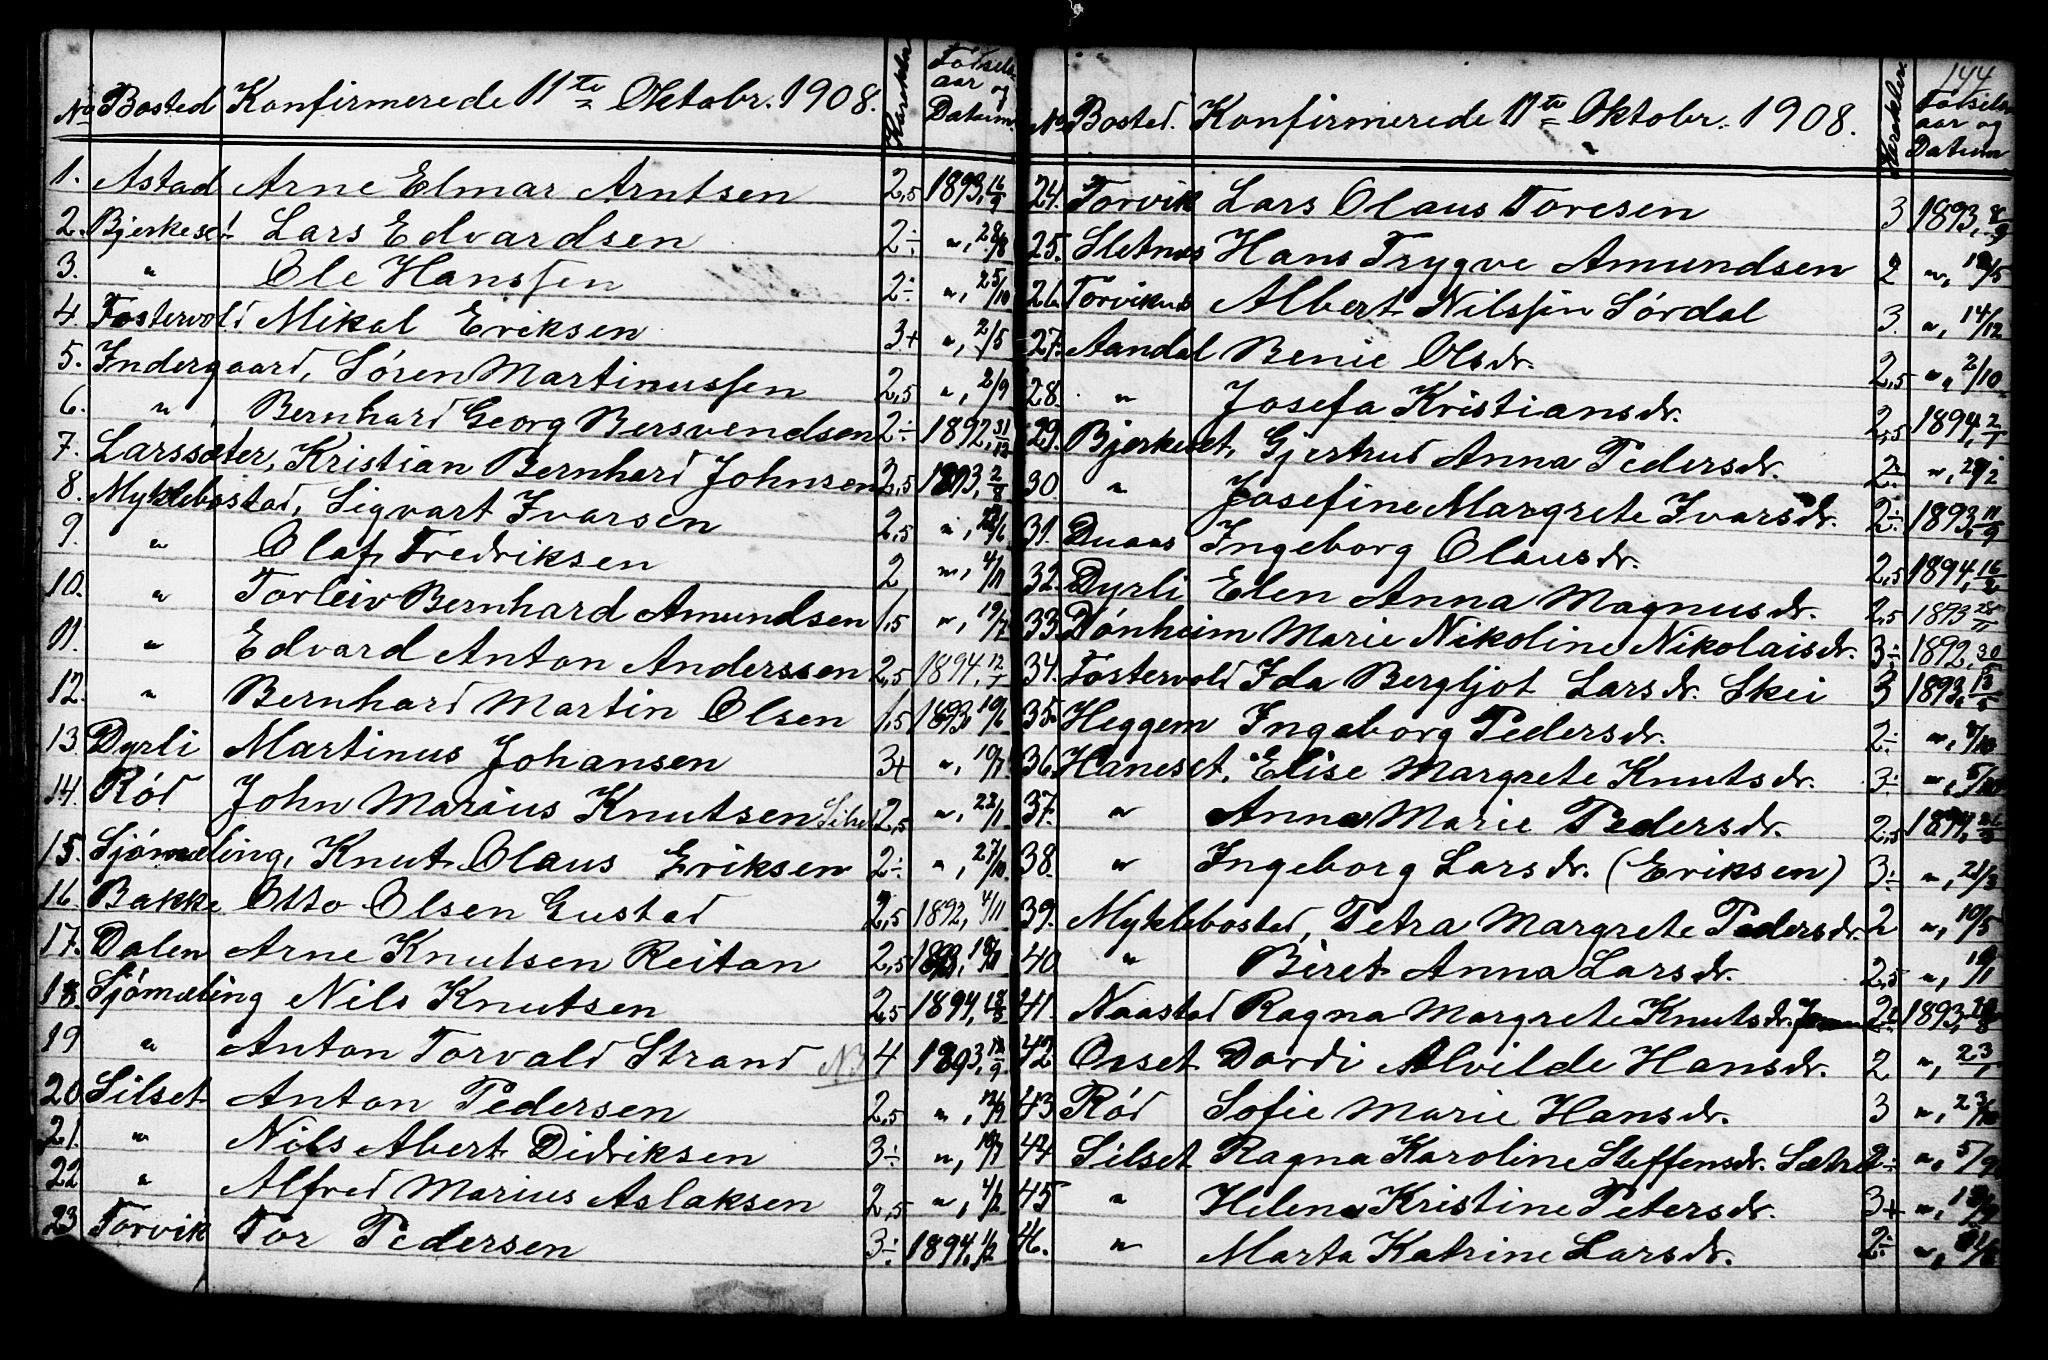 No Bosted Konfirmerede 11te Oktobr. 1908. Karakter Fødsels aar og Datum
1. Astad Arne Elmar Arntsen 2,5 1893, 16/9
2. Bjerkeset Lars Edvardsen 2÷ ", 28/8
3. " Ole Hanssen 2÷ ", 25/10
4. Fostervold Mikal Eriksen 3+ ", 2/5
5. Indergaard, Søren Martinussen 2,5 ", 2/9
6. " Bernhard Georg Bersvendsen 2÷ 1892, 31/12
7. Larssæter, Kristian Bernhard Johnsen 2,5 1893, 2/8
8. Myklebostad, Sigvart Ivarsen 2,5 ",
9. " Olaf Fredriksen 2 ", 4/11
10. " Torleiv Bernhard Amundsen 1,5 ", 19/7
11. " Edvard Anton Anderssen 2,5 1894, 12/1
12. " Bernhard Martin Olsen 1,5 1893, 10/6
13. Dyrli Martinus Johansen 3+ ",
14. Rød John Marius Knutsen 2,5 ", 22/1
15. Sjømæling, Knut Olaus Eriksen 2÷ ", 27/10
16. Bakke Otto Olsen Gustad 2,5 1892, 4/11
17. Dalen Arne Knutsen Reitan 2,5 1893,
18. Sjømæling Nils Knutsen 2,5 1894, 18/3
19 " Anton Torvald Strand NB 4 1893, 12/9
20 Silset Anton Pedersen 2,5 ",
21. " Nils Abert Didriksen 3÷ ",
22 " Alfred Marius Aslaksen 2,5 ", 4/2
23 Torvik Tor Pedersen 3÷ 1894, 1/2
144
No Bosted. Konfirmerede 11te Oktobr. 1908. Karakter Fødsels aar og Datum
24. Torvik Lars Olaus Toresen 3 1893, 8/9
25. Sletnes Hans Trygve Amundsen 2 ",
26. Torviknes Albert Nilssen Sørdal 3. ", 14/12
27. Aandal Benie Olsdr. 2,5 ", 2/10
28. " Josefa Kristiansdr. 2,5 1894, 2/1
29. Bjerkeset, Gjertrud Anna Pedersdr. 2÷ ",
30 " Josefine Margrete Ivarsdr. 2÷ 1893, 11/9
31. Duaas Ingeborg Olausdr. 2,5 1894, 16/2
32. Dyrli Elen Anna Magnusdr. 2,5 1893 25/11
33. Dønheim Marie Nikoline Nikolaisdr. 3÷ 1892, 30/5
34. Fostervold Ida Bergljot Larsdr. Skei 3 1893, 13/5
35. Heggem Ingeborg Pedersdr. 2÷ ", 8/10
36. Haneset, Elise Margrete Knutsdr. 3÷ ", 5/10
37. " Anna Marie Pedersdr. 2,5 1894,
38. " Ingeborg Larsdr. (Eriksen) 3÷ ", 21/3
39. Myklebostad, Petra Margrete Pedersdr. 2 ", 10/5
40 " Beret Anna Larsdr. 2,5 ",
41. Naastad Ragna Margrete Knutsdr. 2÷ 1893,
42. Orset Dordi Alvilde Hansdr. 2 ", 23/1
43 Rød Sofie Marie Hansdr. 3 ", 23/10
44 Silset Ragna Karoline Steffensdr. Sætre 2÷ ", 5/9
45 " Helena Kristine Petersdr. 3+ ",
46. " Marta Katrine Larsdr. 2÷ ",